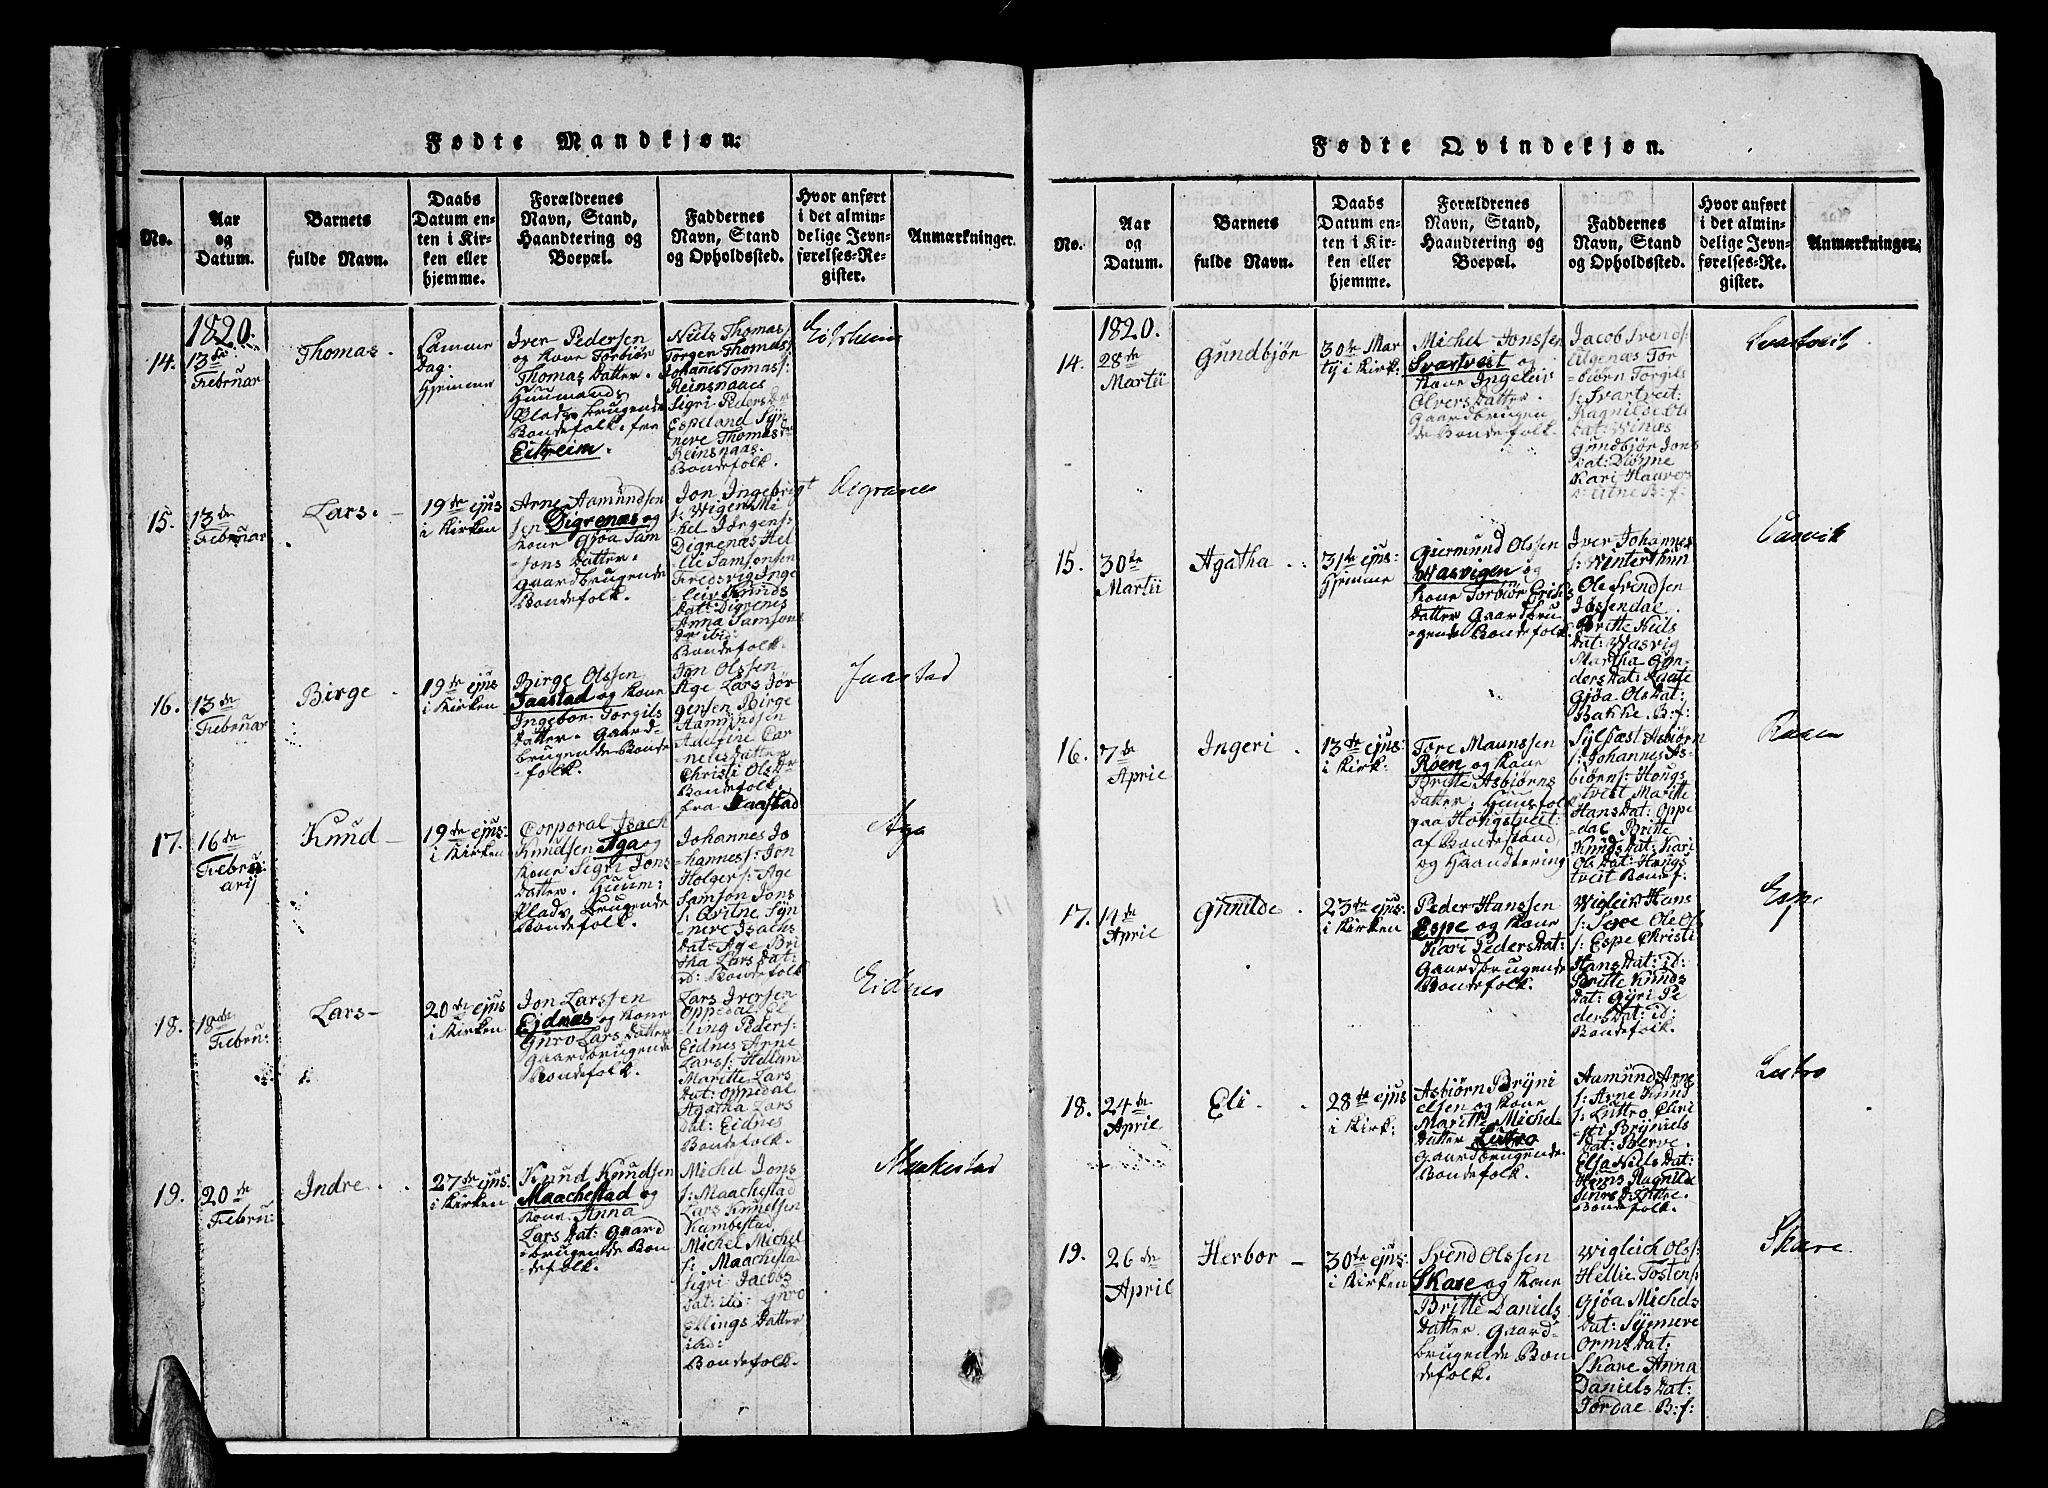 Fødte Mandkjøn.
No.
Aar
og
Datum.
Barnets
fulde Navn.
Daabs
Datum en-
ten i Kir-
ken eller
hjemme.
Forældrenes
Navn, Stand,
Haandtering og
Boepæl.
Faddernes
Navn, Stand
og Opholdssted.
Hvor anført
i det almin-
delige Jevn-
førelses-Re-
gister.
Anmærkninger.
1820.
14.
13de
Februar
Thomas
Samme
Dag:
Hjemme
Iver Pedersen
og Kone Torbiör
Thomas Datter.
Huusmands
Plads brugende
Bondefolk fra
Eitreim.
Niels Thomas
Torgen Thomas
Johanes Tomas:
Reinsnaaes
Sigri Peders Dr
Espeland Syn
neve Thomas Dr
Reinsnaas.
Bondefolk.
15.
13de
Februar
Lars.
19de ejus
i Kirken
Arne Aamundsen
Digrenæs og
Kone Gjøa Sam
sons Datter.
Gaardbrugende
Bondefolk.
Jon Ingebrigt
s: Wigen Mi
kel Jörgens:
Digrenæs Hel
lie Samsonsen
Fredsvig Inge
leiv Knuds
Dat: Digrenes
Anna Samsons
Dr ibi:
Bondefolk.
Digranes
16.
13de
Februar
Birge
19de ejus
i Kirken
Birge Olssen
Jaastad og Kone
Ingebor Torgils
Datter. Gaard-
brugende Bonde
-folk.
Jon Olssen
Age Lars Jör
gensen Birge
Aamundsen
Adelfine Cor
nelis Datter
Christi Ols Dr
Bondefolk
fra Jaastad
Jaastad
17.
16de
Febru
arij
Knud
19de ejus:
i Kirken
Corporal Isach
Knudsen Aga og
Kone Sigri Jons
Datter. Huum:
Plads brugende
Bondefolk.
Johannes Jo
-hannes: Jon
Holgers: Age
Samson Jons
s: Qvitne Syn
neve Isachs
Dat: Age Bri
tha Lars Dat:
id: Bondefolk
Aga
18.
18de
Febru:
Lars
20de ejus
i Kirken
Jon Larssen
Ejdnæs og Kone
Guro Lars Datter
Gaardbrugende
Bondefolk.
Lars Iversen
Oppedal El
ling Peders:
Eidnes Arne
Larss: Hellan
Maritte Lars
Dat: Oppedal
Agatha Lars
Dat: Eidnes
Bondefolk.
Eidnes
19.
20de
Febru:
Indre
27de ejus:
i Kirken
Knud Knudsen
Maachestad og
Kone Anna
Lars Dat: Gaard
-brugende Bon
defolk.
Michel Jons
s: Maachestad
Lars Knudsen
Kambestad
Michel Michel
s: Maachestad
Sigri Jacobs
Dat: ibd: Guro
Ellings Datter
ibd:
Bondefolk.
Maakestad
Fødte Qvindekjøn.
No.
Aar
og
Datum.
Barnets
fulde Navn.
Daabs
Datum en-
ten i Kir-
ken eller
hjemme.
Forældrenes
Navn, Stand,
Haandtering og
Boepæl.
Faddernes
Navn, Stand
og Opholdssted.
Hvor anført
i det almin-
delige Jevn-
førelses-Re-
gister.
Anmærkninger.
1820.
14.
28de
Martii
Gundbjör
30de Mar
tij i Kirk:
Michel Jonssen
Svartveit og
Kone Ingeleiv
Olvers Datter.
Gaardbrugen
de Bondefolk.
Jacob Svends:
Algenæs Tor
biörn Torgils
s: Svartveit:
Ragnilde Ol
Dat: Winæs
Gundbjör Jons
Dat: Djönne
Kari Haavers
D: Utne B: f:
Svartveit
15.
30de
Martii
Agatha
31te ejus:
Hjemme
Giermund Olssen
Wasvigen og
Kone Torbiör Erichs
Datter Gaardbru
-gende Bondefolk.
Iver Johannes
s: Winterthun
Ole Svendsen
Jössendal
Britte Niels
Dat: Wasvig
Martha Gun
ders Dat: Laate
Gjöa Ols Dat:
Bakke. B: f:
Vasvik
16.
7de
April
Ingeri
13de ejus:
i Kirk:
Tore Maunssen
Roen og Kone
Britte Asbiörns
Datter. Huusfolk
paa Hongstveit
af Bondestand
og Haandtering
Sylfæst Asbiörn
s: Johannes As
biörns: Hongs
tveit Maritte
Hans Dat: Oppe
dal Britte
Knuds Dat: Kari
Ols Dat: Hongs
tveit Bondf:
Raaen
17.
14de
April
Gunilde
23de ejus:
i Kirken
Peder Hanssen
Espe og Kone
Kari Peders Dat:
Gaardbrugende
Bondefolk.
Wigleiv Hans
s: Sexe Ole Ols
s: Espe Christi
Hans Dat: id:
Britte Knuds
Dat: Gyri Pe
ders Dat: id:
Bondefolk.
Espe
18.
24de
April
Eli
28de ejus
i Kirk:
Asbiörn Bryni
elsen og Kone
Maritte Michel
Datter Lutro
Gaardbrugende
Bondefolk.
Aamund Arne
s: Arne Knud
s: Luttro Chri
sti Bryniels
Dat: Berve.
Elsa Niels Dat:
Hauss Ragnilde
Bondefolk.
Lutro
19.
26de
April
Herbor
30te ejus:
i Kirken
Svend Olssen
Skare og Kone
Britte Daniels
Datter. Gaard-
brugende Bon
defolk.
Wigleich Ols:
Hellie Tostens:
Gjöa Michels
Dat: Synneve
Orms Dat:
Skare Anna
Daniels Dat:
Jordal B: f:
Skare